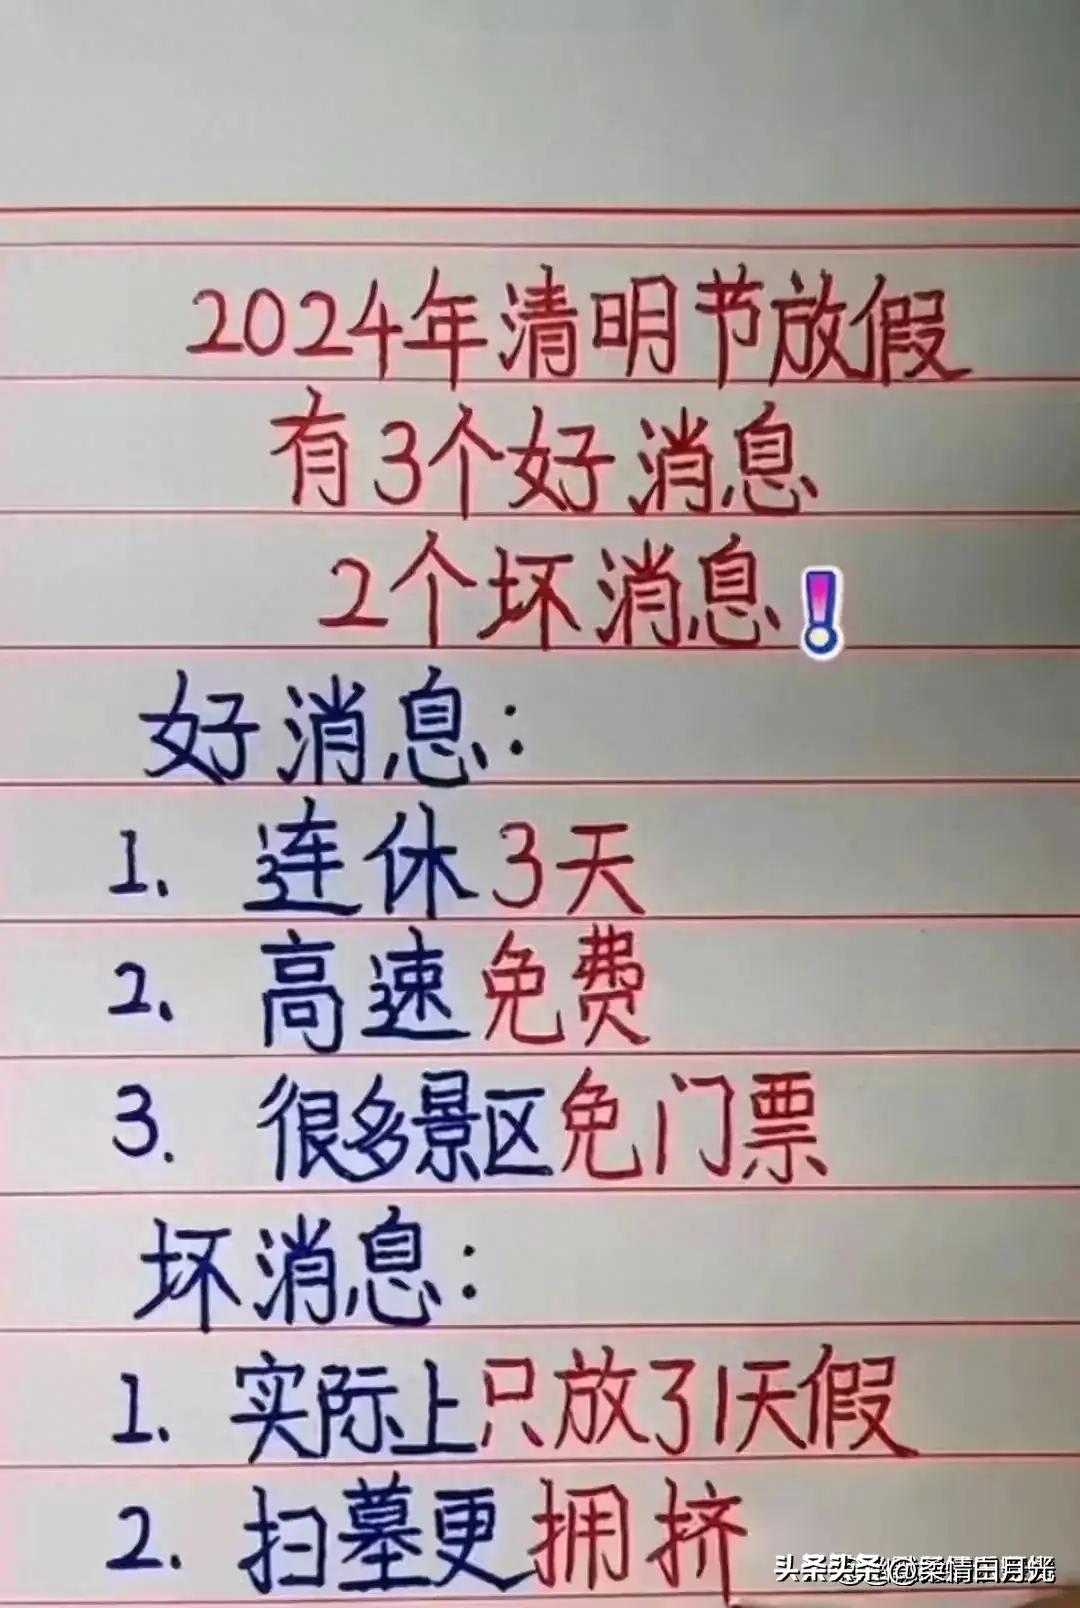 2024年清明节放假
有3个好消息
2个坏消息！
好消息：
1、连休3天
2、高速免费
3. 很多景区免门票
坏消息：
1、实际上只放了1天假
2. 扫墓更拥挤
头条头条@柔情白月光